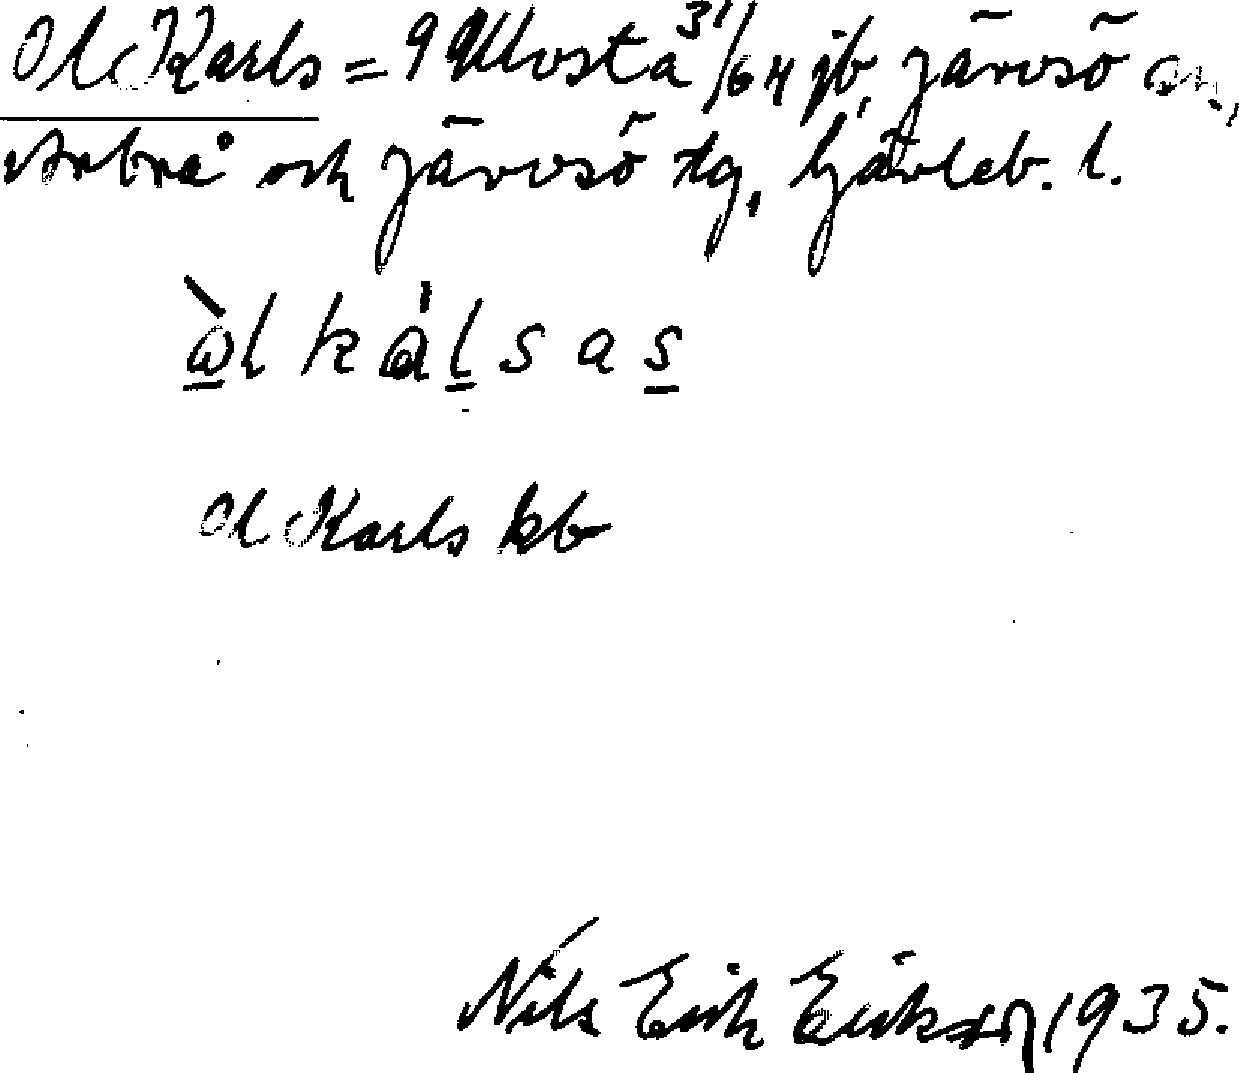 Ol Karls = 9 Ullvsta 31/64 jb, Järvsö sn,
Arbrå och Järvsö tg, Gävleb. l.
òl kálsas
Ol Karls kb
Nils Erik Eriksson 1935.